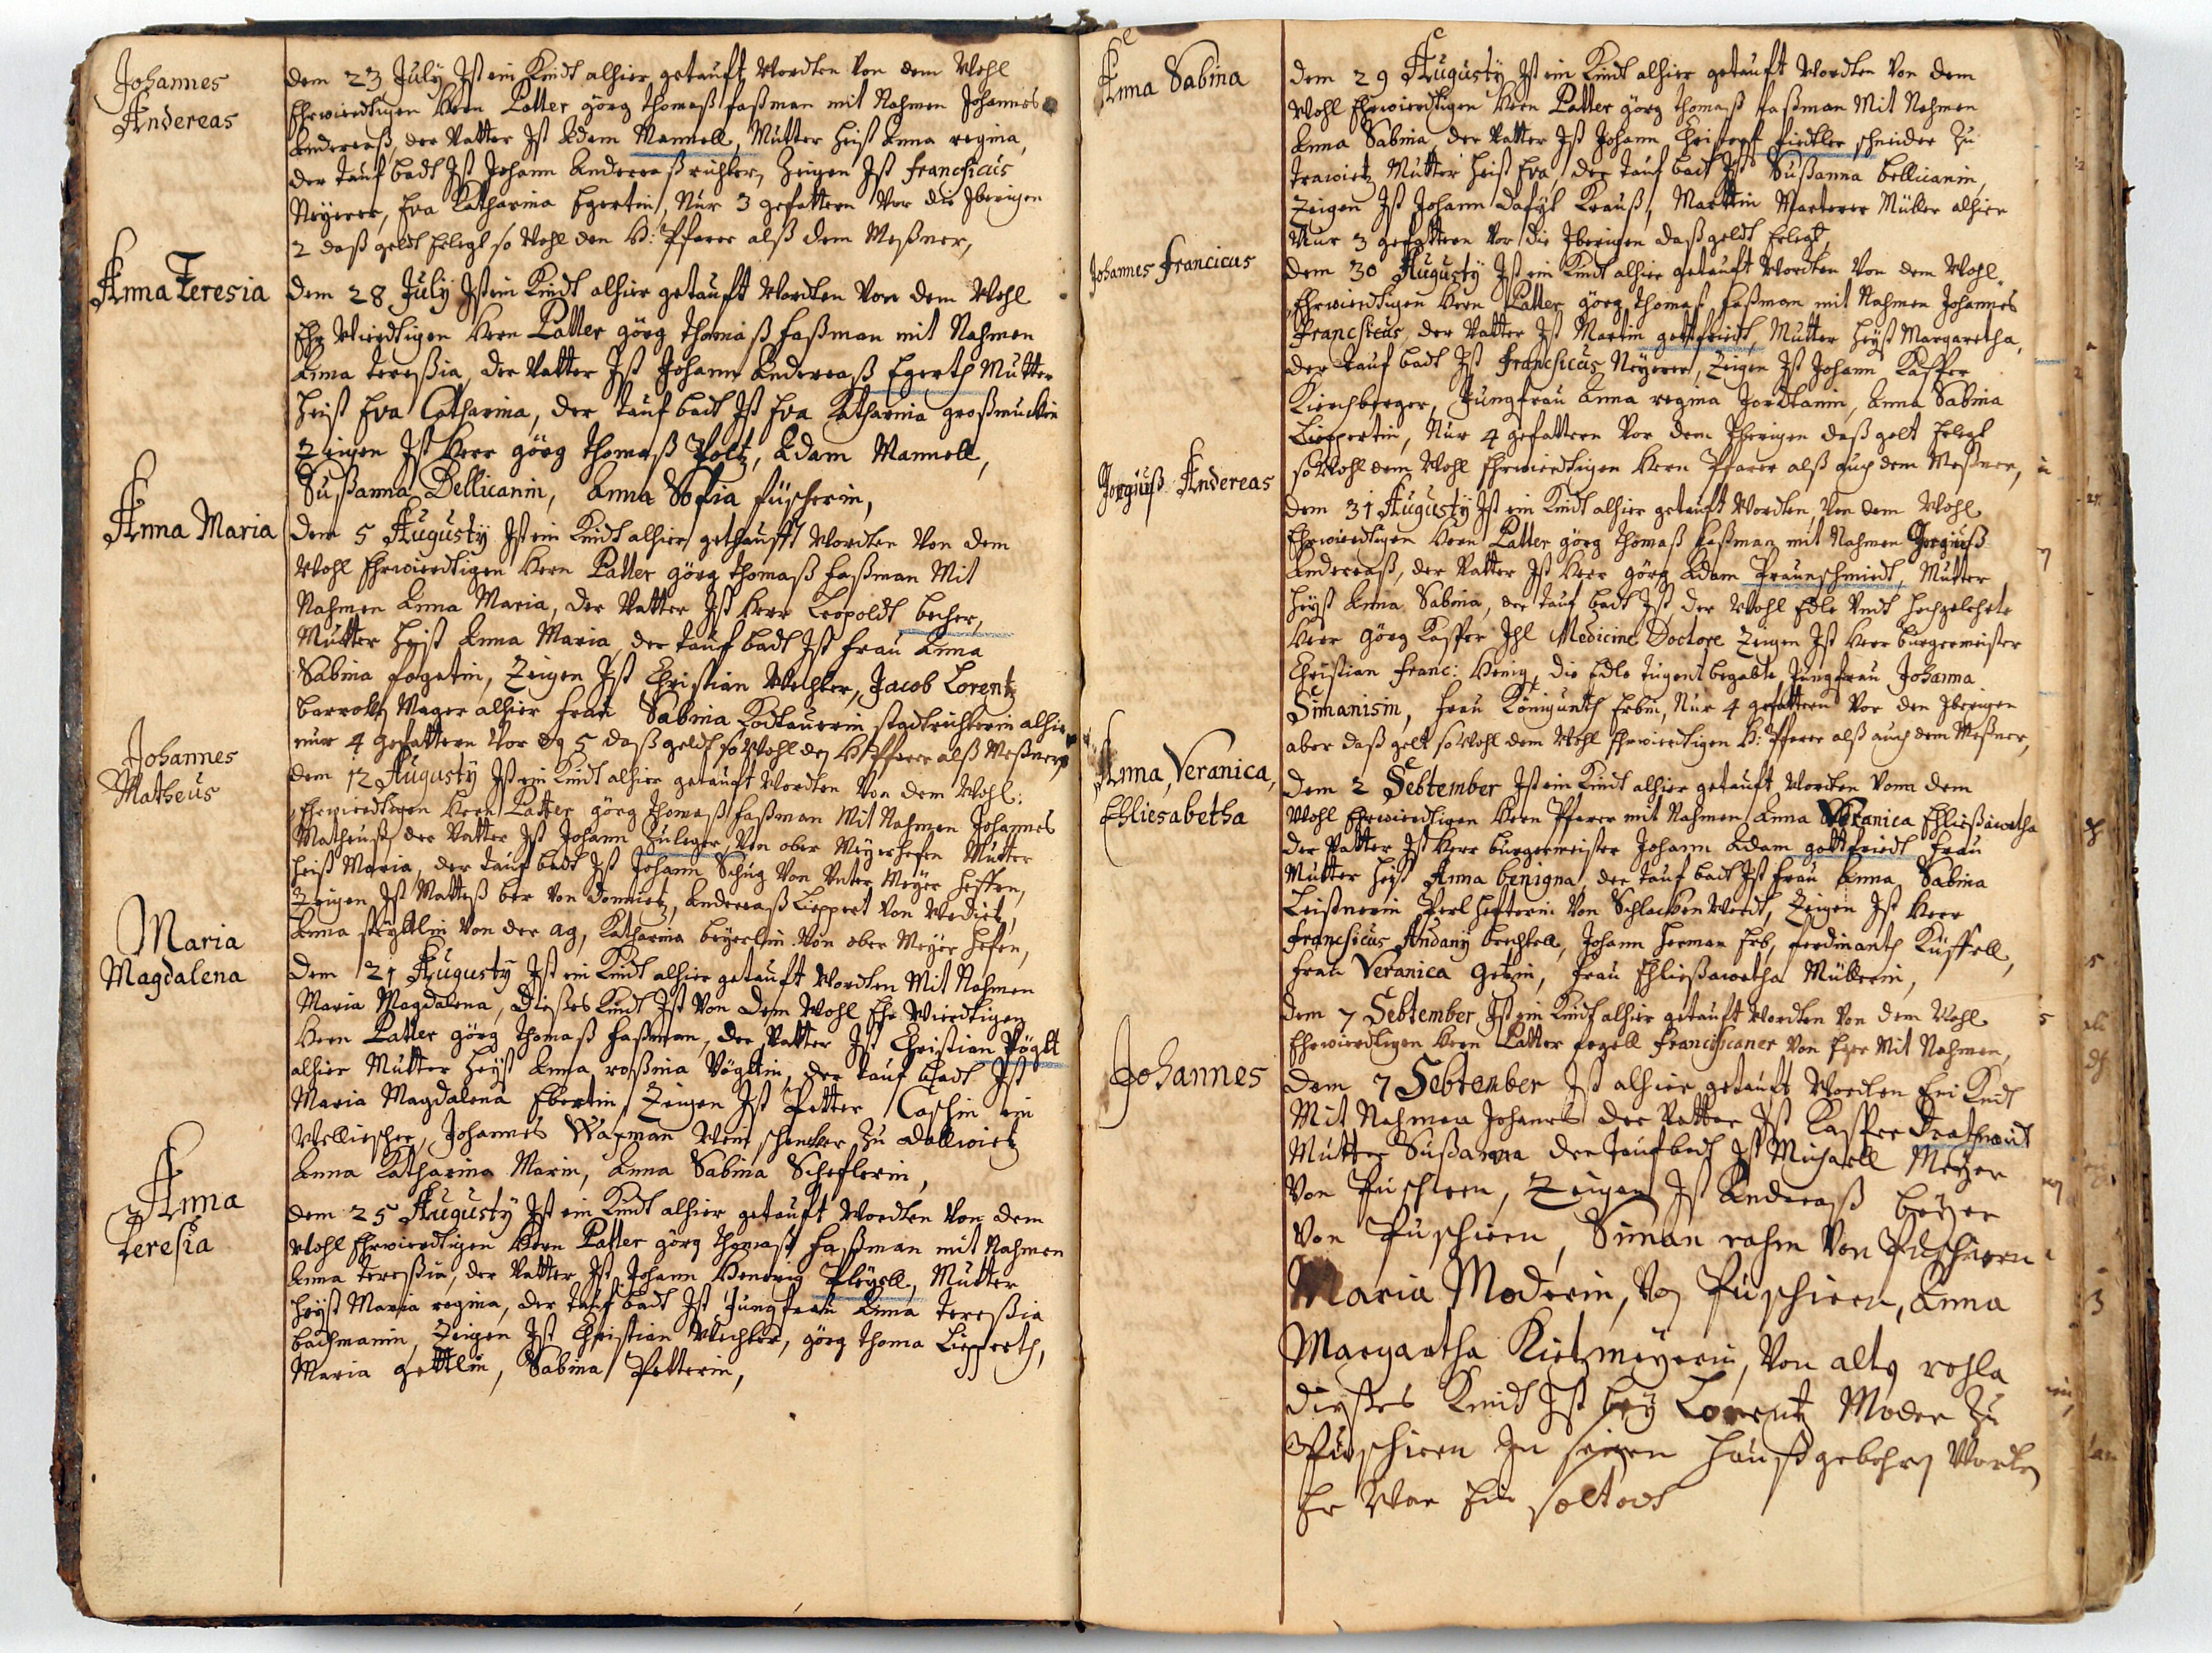 Johannes
Andereas
dem 23 July Ist ein Kindt alhier getauft Wordten von dem Wohl
Ehrwierdtigen Hern Patter görg thomaß faßman mit Nahmen Johannes
Andereaß, der Vatter Ist Adam Mannell, Mutter heist Anna regina,
der tauf badt Ist Johann Andereaß richter, Zeigen Ist francsicus
Neyerer, Eva Katharina Egertin, Nur 3 gefattern Vor die Iberigen
2 daß geldt Erlegt so Wohl den H: Pfarer alß dem Meßner,
Anna Teresia
dem 28 July Ist ein Kindt alhier getauft Wordten Von dem Wohl
Ehr Wierdtigen Hern Patter görg thomaß faßman mit Nahmen
Anna tereßia, der Vatter Ist Johann Andereaß Egerth Mutter
heist Eva Catharina, der tauf badt Ist Eva Katharnia
Zeigen Ist Herr görg thomaß Poltz, Adam Mannell,
Sußanna Dellicanin, Anna Sofia füscherin,
Anna Maria
dem 5 Augusty Ist ein Kindt alhier gethaufft Wordten Von dem
Wohl Ehrwierdtigen Hern Patter görg thomaß faßman Mit
Nahmen Anna Maria, der Vatter Ist Herr Leopoldt becher,
Mutter heist Anna Maria, der tauf badt Ist frau Anna
Sabina fogetin, Zeigen Ist Christian Wechter, Jacob Lorentz
Mager alhier frau Sabina stadtrichterin alhier
nur 4 gefattern Vor 5 daß geldt so Wohl den H Pfarer alß Meßner
Johannes
Matheus
dem 12 Augusty Ist ein Kindt alhier getauft Wordten Von dem Wohl:
Ehrwierdtigen Hern Patter görg thomaß faßman Mit Nahmen Johannes
Matheuß der Vatter Ist Johann Zuleger, Von ober Meyerhefen Mutter
heist Maria, der tauf badt Ist Johann Schug Von Unter Meyer heffen,
Zeigen Ist Matteß ber Von Donnietz, Andereaß Lieppert Von Wedietz,
Anna Von der ag, Katharina beyerlin Von ober Meyer hefen,
Maria
Magdalena
Dem 21 Augusty Ist ein Kindt alhier getauft Wordten Mit Nahmen
Maria Magdalena, Dießes Kindt Ist Von dem Wohl Ehr Wierdtigen
Hern Patter görg thomaß faßman, der Vatter Ist Christian Vögtt
alhier Mutter heyst Anna roßina Vögtin, der tauf badt Ist
Maria Magdalena Ebertin, Zeigen Ist Petter Caschin ein
Welliescher, Johannes Waxman Wein schencker Zu Dallwietz
Anna Katharina Marin, Anna Sabina Scheflerin,
Anna
Teresia
dem 25 Augusty Ist ein Kindt alhier getauft Wordten Von dem
Wohl Ehrwierdtigen Hern Patter görg thomaß faßman mit Nahmen
Anna tereßia, der Vatter Ist Johann Henerig Pleyell, Mutter
heyst Maria regina, der tauf badt Ist Jungfrau Anna tereßia
bachmanin, Zeigen Ist Christian Wechter, görg thoma Lieperth,
Maria gettlin, Sabina Petterin,
Anna Sabina
dem 29 Augusty Ist ein Kindt alhier getauft Wordten Von dem
Wohl Ehrwierdtigen Hern Patter görg thomaß faßman Mit Nahmen
Anna Sabina, der Vatter Ist Johann Christoff fiedtler schneider Zu
trawietz Mutter heist Eva, der tauf badt Ist Sußanna bellicanin,
Zeigen Ist Johann Dafyt Krauß, Marttin Marterer Müller alhier
Nur 3 gefattern Vor die Iberigen daß geldt Erlegt,
Johannes Francicus
dem 30 Augusty Ist ein Kindt alhier getauft Wordten Von dem Wohl
Ehrwierdtigen Hern Patter görg thomaß faßman mit Nahmen Johannes
Francsicus, der Vatter Ist Martin gottfriedt, Mutter heyst Margaretha,
der tauf badt Ist francsicus Neyerer, Zeigen Ist Johann Kasper
Kirchberger, Jungfrau Anna regina Jordtanin, Anna Sabina
Lieppertin, Nur 4 gefattern Vor dem Iberigen daß gelt Erlegt
so Wohl dem Wohl Ehrwierdtigen Hern Pfarer alß auch dem Meßner,
Jorgiuß Andereas
dem 31 Augusty Ist ein Kindt alhier getauft Wordten Von dem Wohl
Ehrwierdtigen Hern Patter görg thomaß faßman mit Nahmen Jorgiuß
Andereaß, der Vatter Ist Herr görg Adam Praunschmiedt, Mutter
heyst Anna Sabina, der tauf badt Ist der Wohl Edle Undt hochgelehrte
Herr görg Kasper Ihl Medicine Doctore Zeigen Ist Herr burgermeister
Christian Franc: Henig, die Edle tugent begabte Jungfrau Johanna
Simanisin, frau Königunth Erbin, Nur 4 gefattern Vor den Iberigen
aber daß gelt so Wohl dem Wohl Ehrwierdtigen H: Pfarer alß auch dem Meßner,
Anna, Veranica,
Ehliesabetha
dem 2 Sebtember Ist ein Kindt alhier getauft Wordten Vonn dem
Wohl Ehrwierdtigen Hern Pfarer mit Nahmen Anna Veranica Ehließawetha
der Vatter Ist Herr burgermeister Johann Adam gottfriedt frau
Mutter heist Anna benigna, der tauf badt Ist frau Anna Sabina
Leißnerin Perl hefterin Von Schlacken Werdt, Zeigen Ist Herr
francsicus Andany bechtell, Johann Herman Erb, ferdinanth Küffell,
frau Veranica Getzin, frau Ehließawetha Müllerin,
dem 7 Sebtember Ist ein Kindt alhier getauft Wordten Von dem Wohl
Ehrwierdtigen Hern Patter Francsiscaner Von Eger Mit Nahmen,
Johannes
dem 7 Sebtember Ist alhier getauft Worden Ein Kindt
Mit Nahmen Johannes der Vatter Ist Kasper
Mutter Sußanna der tauf badt Ist Michaell Meyer
Von Putschieren, Zeigen Ist Andereaß beyer
Von Putschieren, Siman rahm Von Putschieren
Maria Moderin, Von Putschieren, Anna
Margaretha Kietzmeyerin, Von alten rohla
dießes Kindt Ist bey Lorentz Moder Zu
Putschieren In seinen Hauß gebohren Worden
Er War Ein soltat